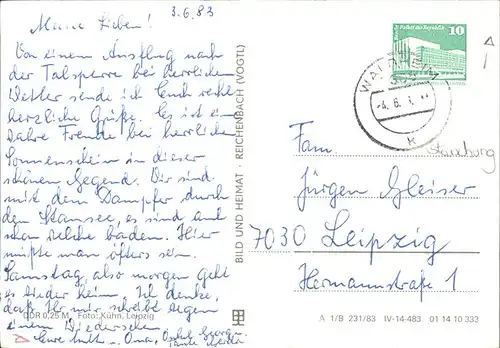 Meine Lieben! 3.6.83
Von einem Ausflug nach
der Talsperre bei herrlichem
Wetter sende ich Euch recht
herzliche Grüße. Es ist eine
wahre Freude bei herrlichem
Sonnenschein in dieser
schönen Gegend. Wir sind
mit dem Dampfer durch
den Stausee, es sind auch
schon welche baden. Hier
müßte man öfters sein.
Samstag, also morgen geht
es wieder heim. Ich denke,
daß Ihr mir schreibt wegen
einem Wiedersehen
Eure Oma,
DDR 0,25 M Foto: Kühn, Leipzig
BILD UND HEIMAT · REICHENBACH (VOGTL)
Palast der Republik
10
DDR
WALDHEIM
Fam.
Jürgen Gleiser
7030 Leipzig
Hermannstraße 1
A 1/B 231/83 IV-14-483 01 14 10 333